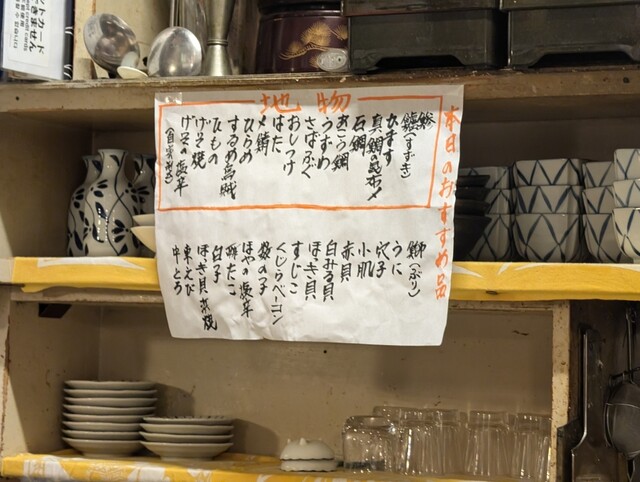 本日のおすすめ品
地物
鯵
鱸(すずき)
かます
真鯛の昆布〆
石鯛
おこう鯛
うすめ
さばふぐ
おしつけ
はた
〆鯖
ひらめ
するめ烏賊
ひもの
げそ焼
げその塩辛
鰤(ぶり)
うに
穴子
小肌
赤貝
白みる貝
ほき貝
すじこ
くじらベーコン
数の子
ほやの塩辛
酢だこ
白子
ほき貝串焼
車えび
中とろ
カード
できません